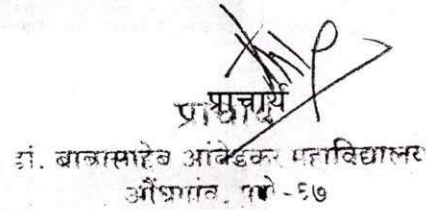 प्राचार्य
प्राचार्य
डॉ. बाबासाहेब आंबेडकर महाविद्यालय
औंधगांव, पुणे - ६७